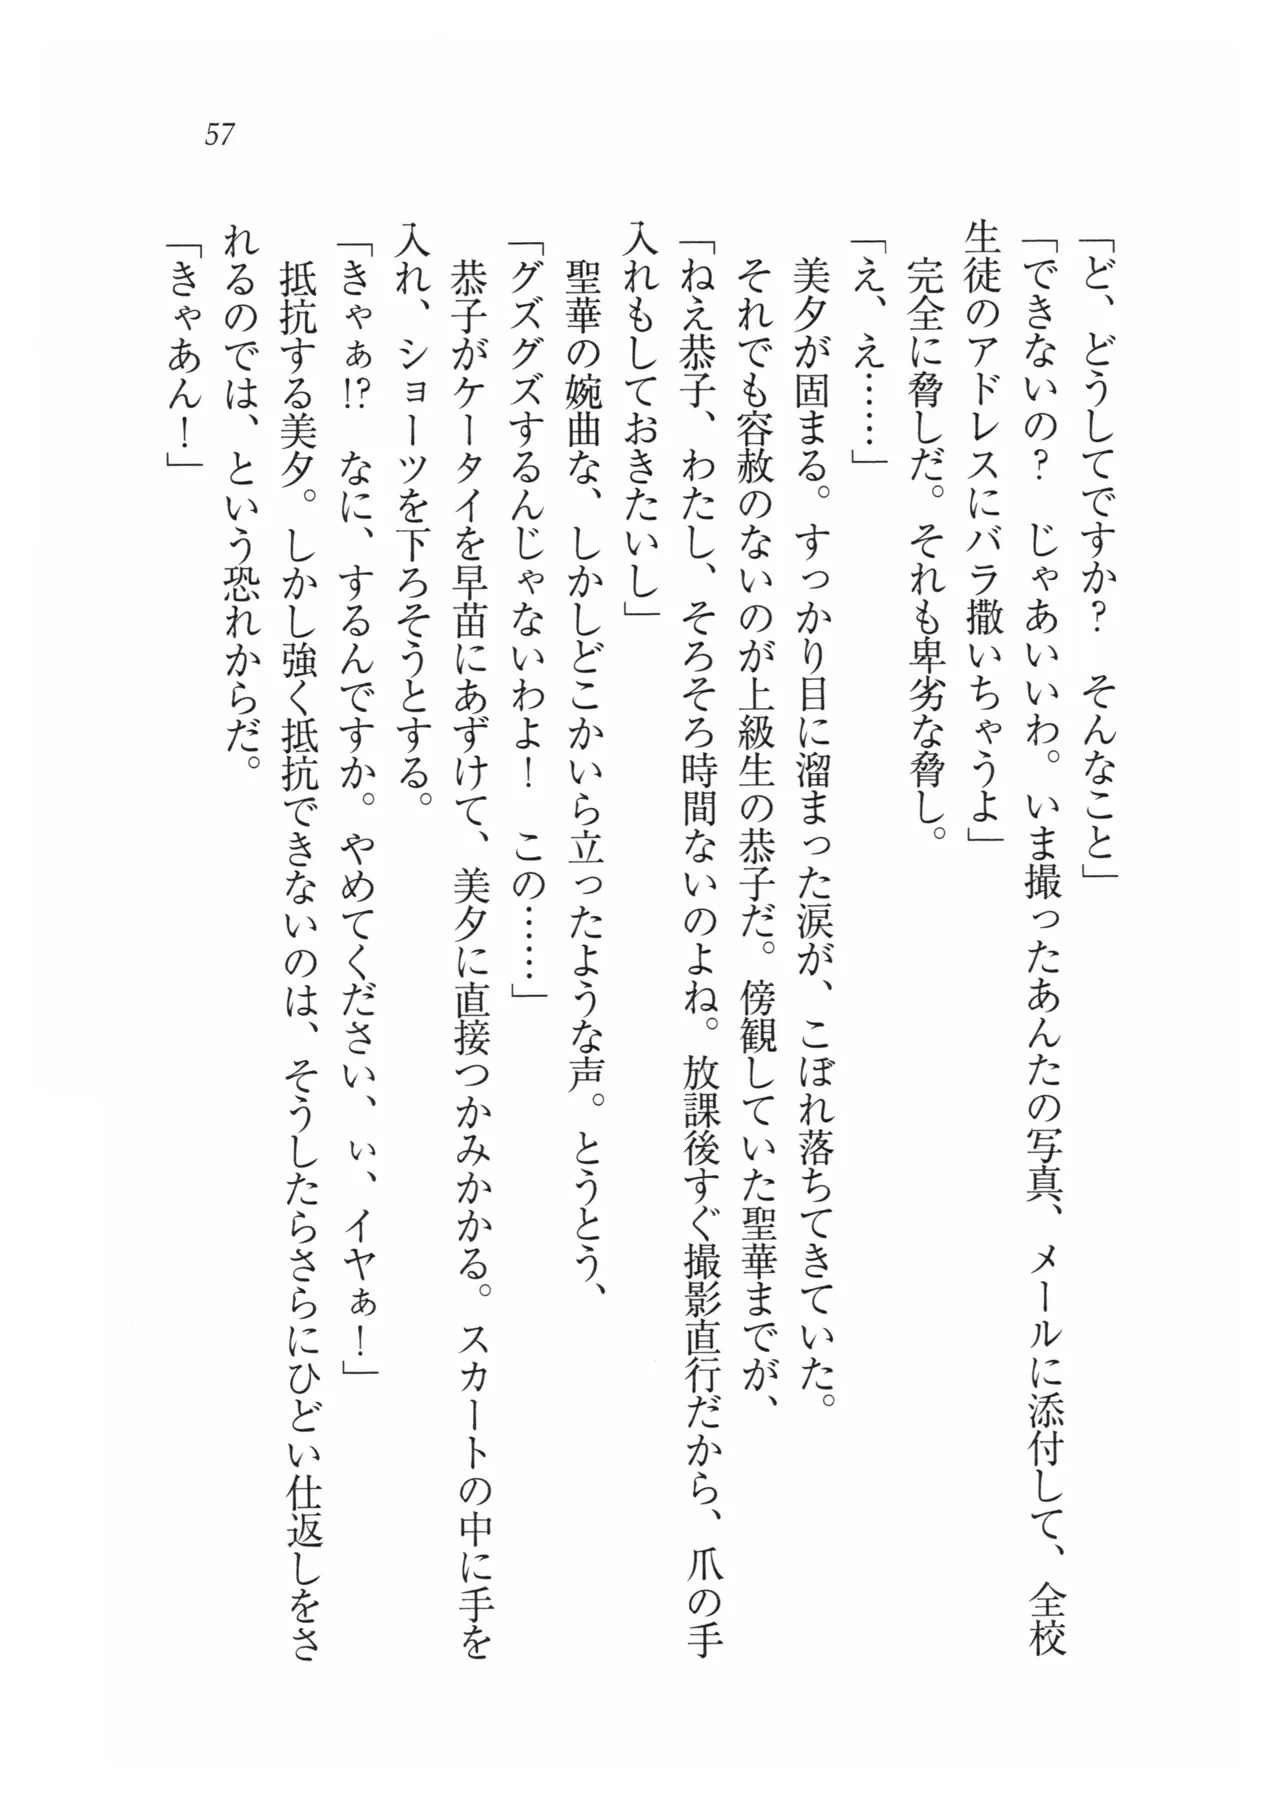 57
「ど、どうしてですか？　そんなこと」
「できないの？　じゃあいいわ。いま撮ったあんたの写真、メールに添付して、全校
生徒のアドレスにバラ撒いちゃうよ」
　完全に脅しだ。それも卑劣な脅し。
「え、え……」
　美夕が固まる。すっかり目に溜まった涙が、こぼれ落ちてきていた。
　それでも容赦のないのが上級生の恭子だ。傍観していた聖華までが、
「ねえ恭子、わたし、そろそろ時間ないのよね。放課後すぐ撮影直行だから、爪の手
入れもしておきたいし」
　聖華の婉曲な、しかしどこかいら立ったような声。とうとう、
「グズグズするんじゃないわよ！　この……」
　恭子がケータイを早苗にあずけて、美夕に直接つかみかかる。スカートの中に手を
入れ、ショーツを下ろそうとする。
「きゃぁ!?　なに、するんですか。やめてください、ぃ、イヤぁ！」
　抵抗する美夕。しかし強く抵抗できないのは、そうしたらさらにひどい仕返しをさ
れるのでは、という恐れからだ。
「きゃあん！」